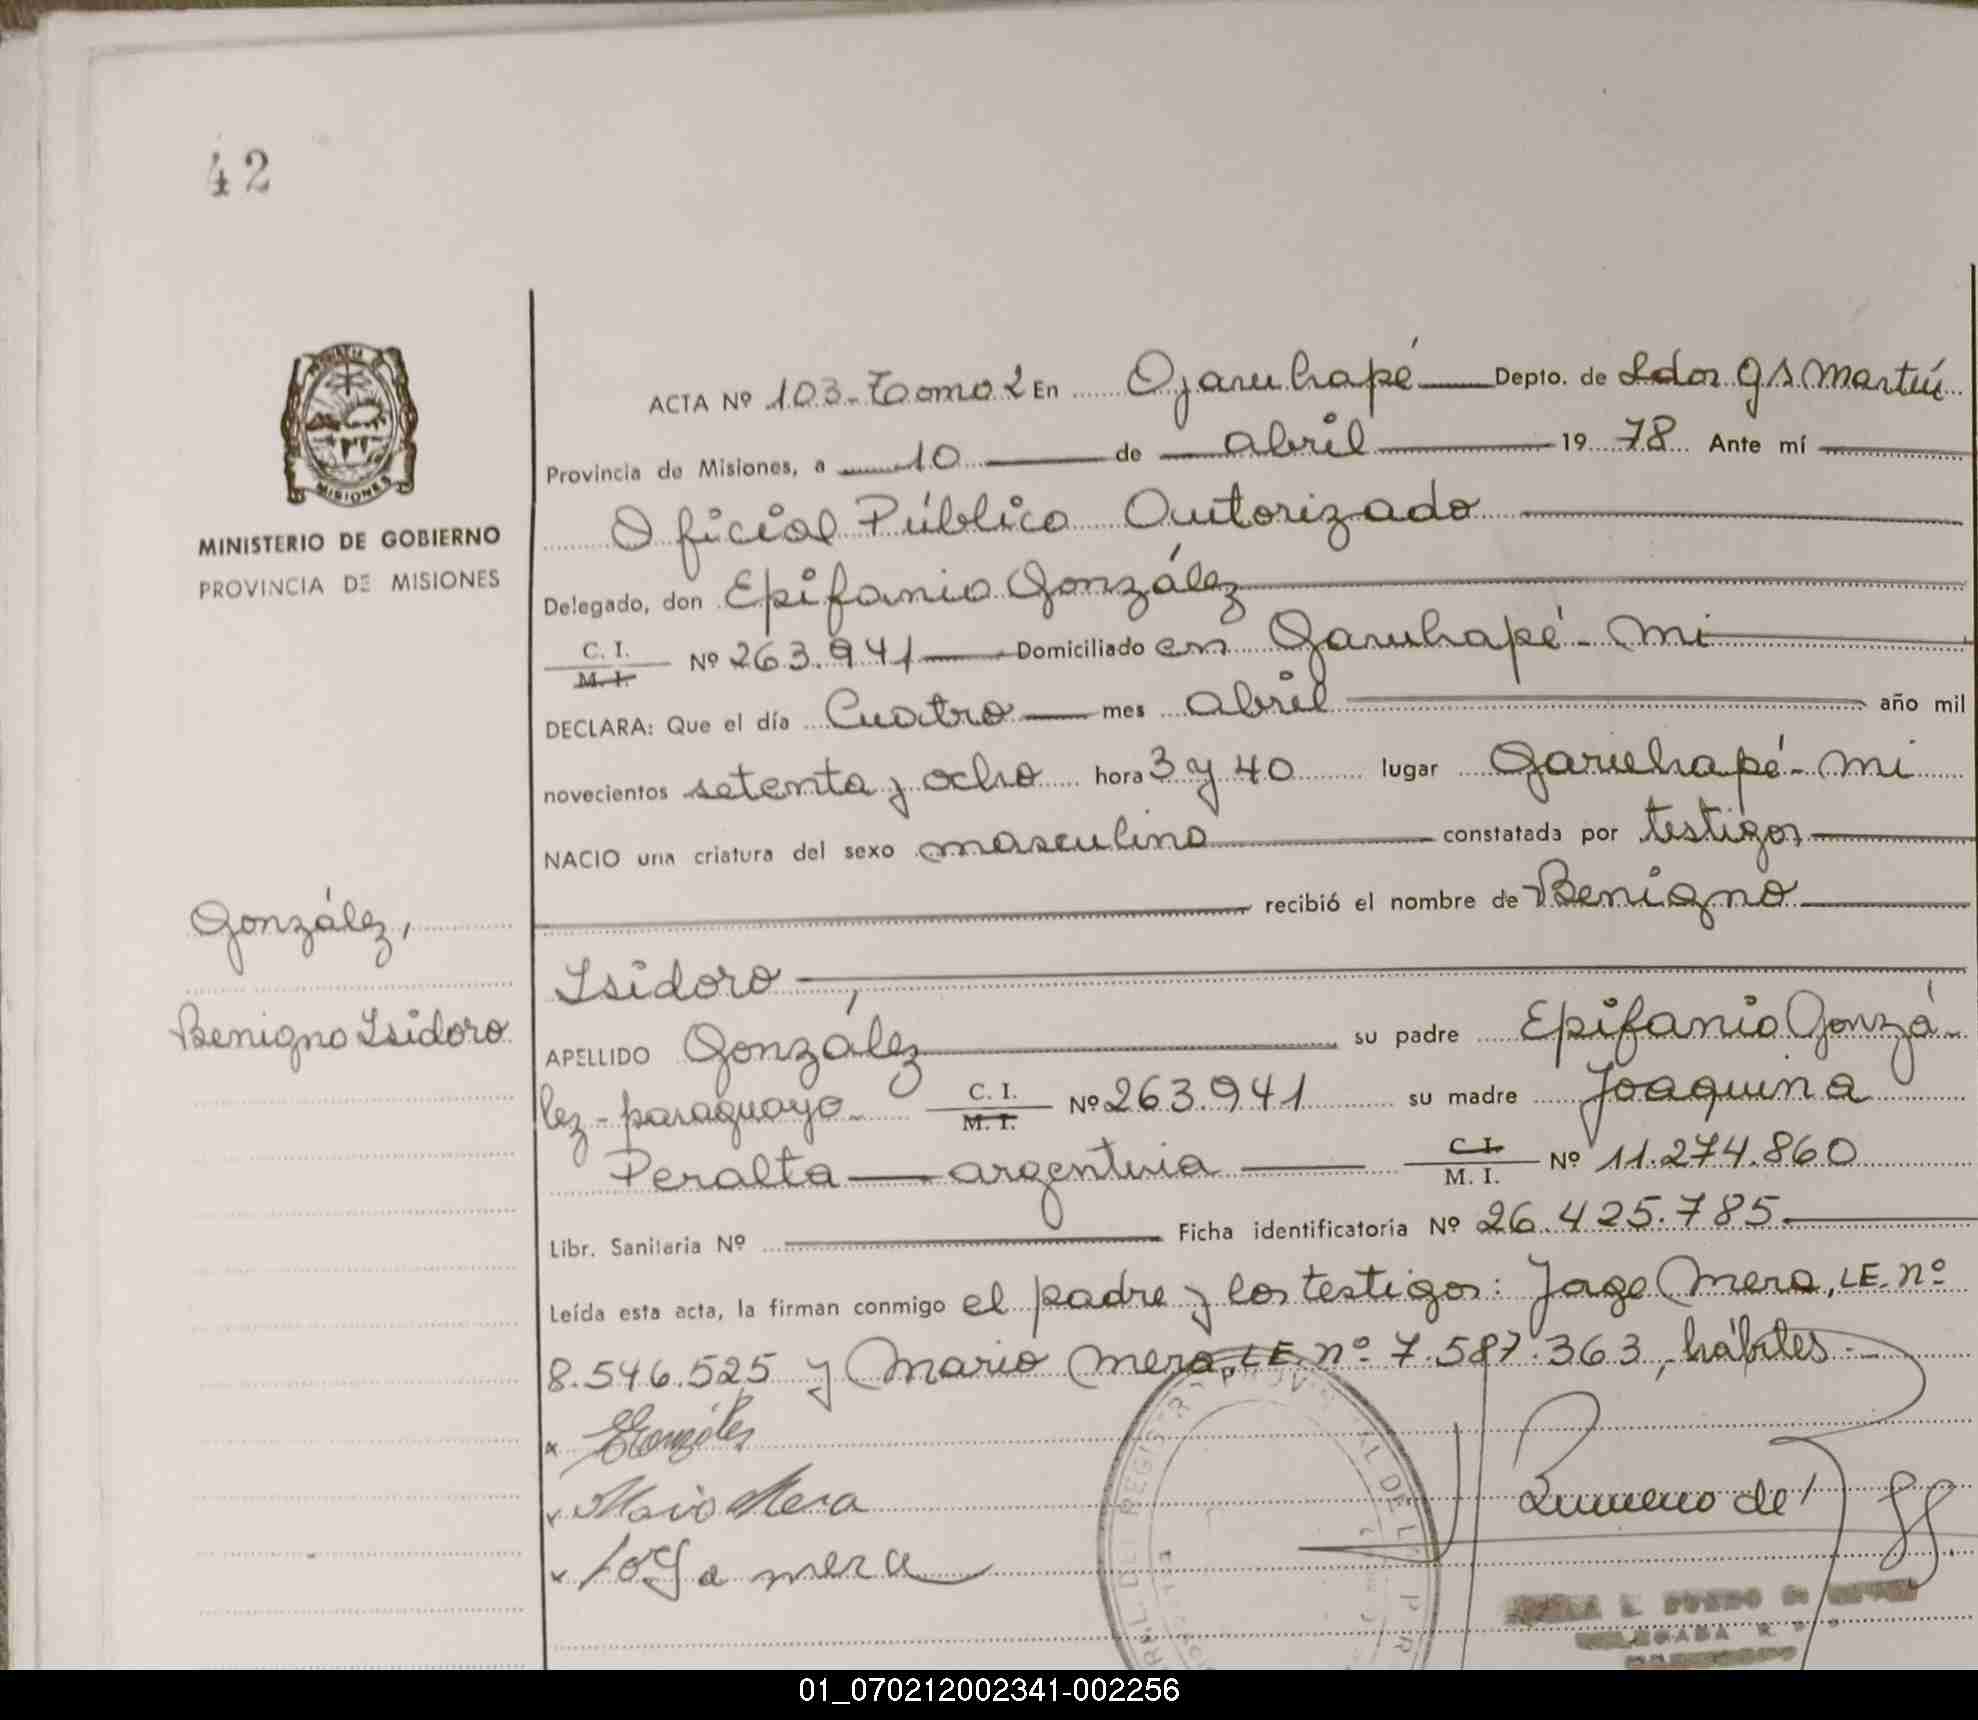 42
MINISTERIO DE GOBIERNO
PROVINCIA DE MISIONES
González,
Benigno Isidoro
ACTA Nº 103-Tomo 2 En Garuhapé Depto. de Ldor G S Martín
Provincia de Misiones, a 10 de abril 1978 Ante mí
Oficial Público Autorizado
Delegado, don Epifanio González
C. I.
M. I. Nº 263.941 Domiciliado en Garuhapé-mi
DECLARA: Que el día Cuatro mes abril año mil
novecientos setenta y ocho hora 3 y 40 lugar Garuhapé-mi
NACIO una criatura del sexo masculino constatada por testigos
recibió el nombre de Benigno
Isidoro,
APELLIDO González su padre Epifanio Gonzá-
lez-paraguayo C. I. M. I. Nº 263.941 su madre Joaquina
Peralta argentina C. I. M. I. Nº 11.274.860
Libr. Sanitaria Nº Ficha identificatoria Nº 26.425.785
Leída esta acta, la firman conmigo el padre y los testigos: Jorge Mera, LE. nº
8.546.525 y Mario Mera, LE. nº 7.587.363, hábiles.-
x EGonzáles
x Mario Mera
x Jorge mera
MISIONES
01_070212002341-002256